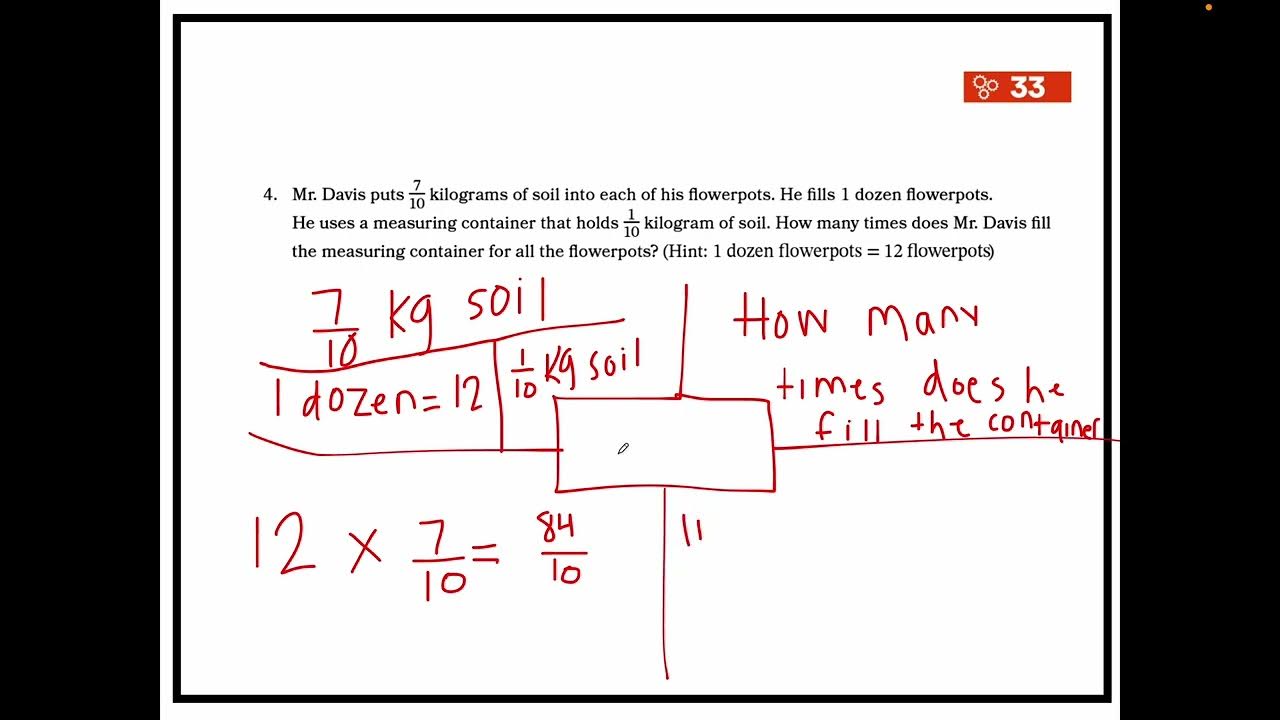 33
4. Mr. Davis puts 7/10 kilograms of soil into each of his flowerpots. He fills 1 dozen flowerpots.
He uses a measuring container that holds 1/10 kilogram of soil. How many times does Mr. Davis fill
the measuring container for all the flowerpots? (Hint: 1 dozen flowerpots = 12 flowerpots)
7/10 kg soil
1 dozen = 12
1/10 kg soil
How many
times does he
fill the container
12 × 7/10 = 84/10
11